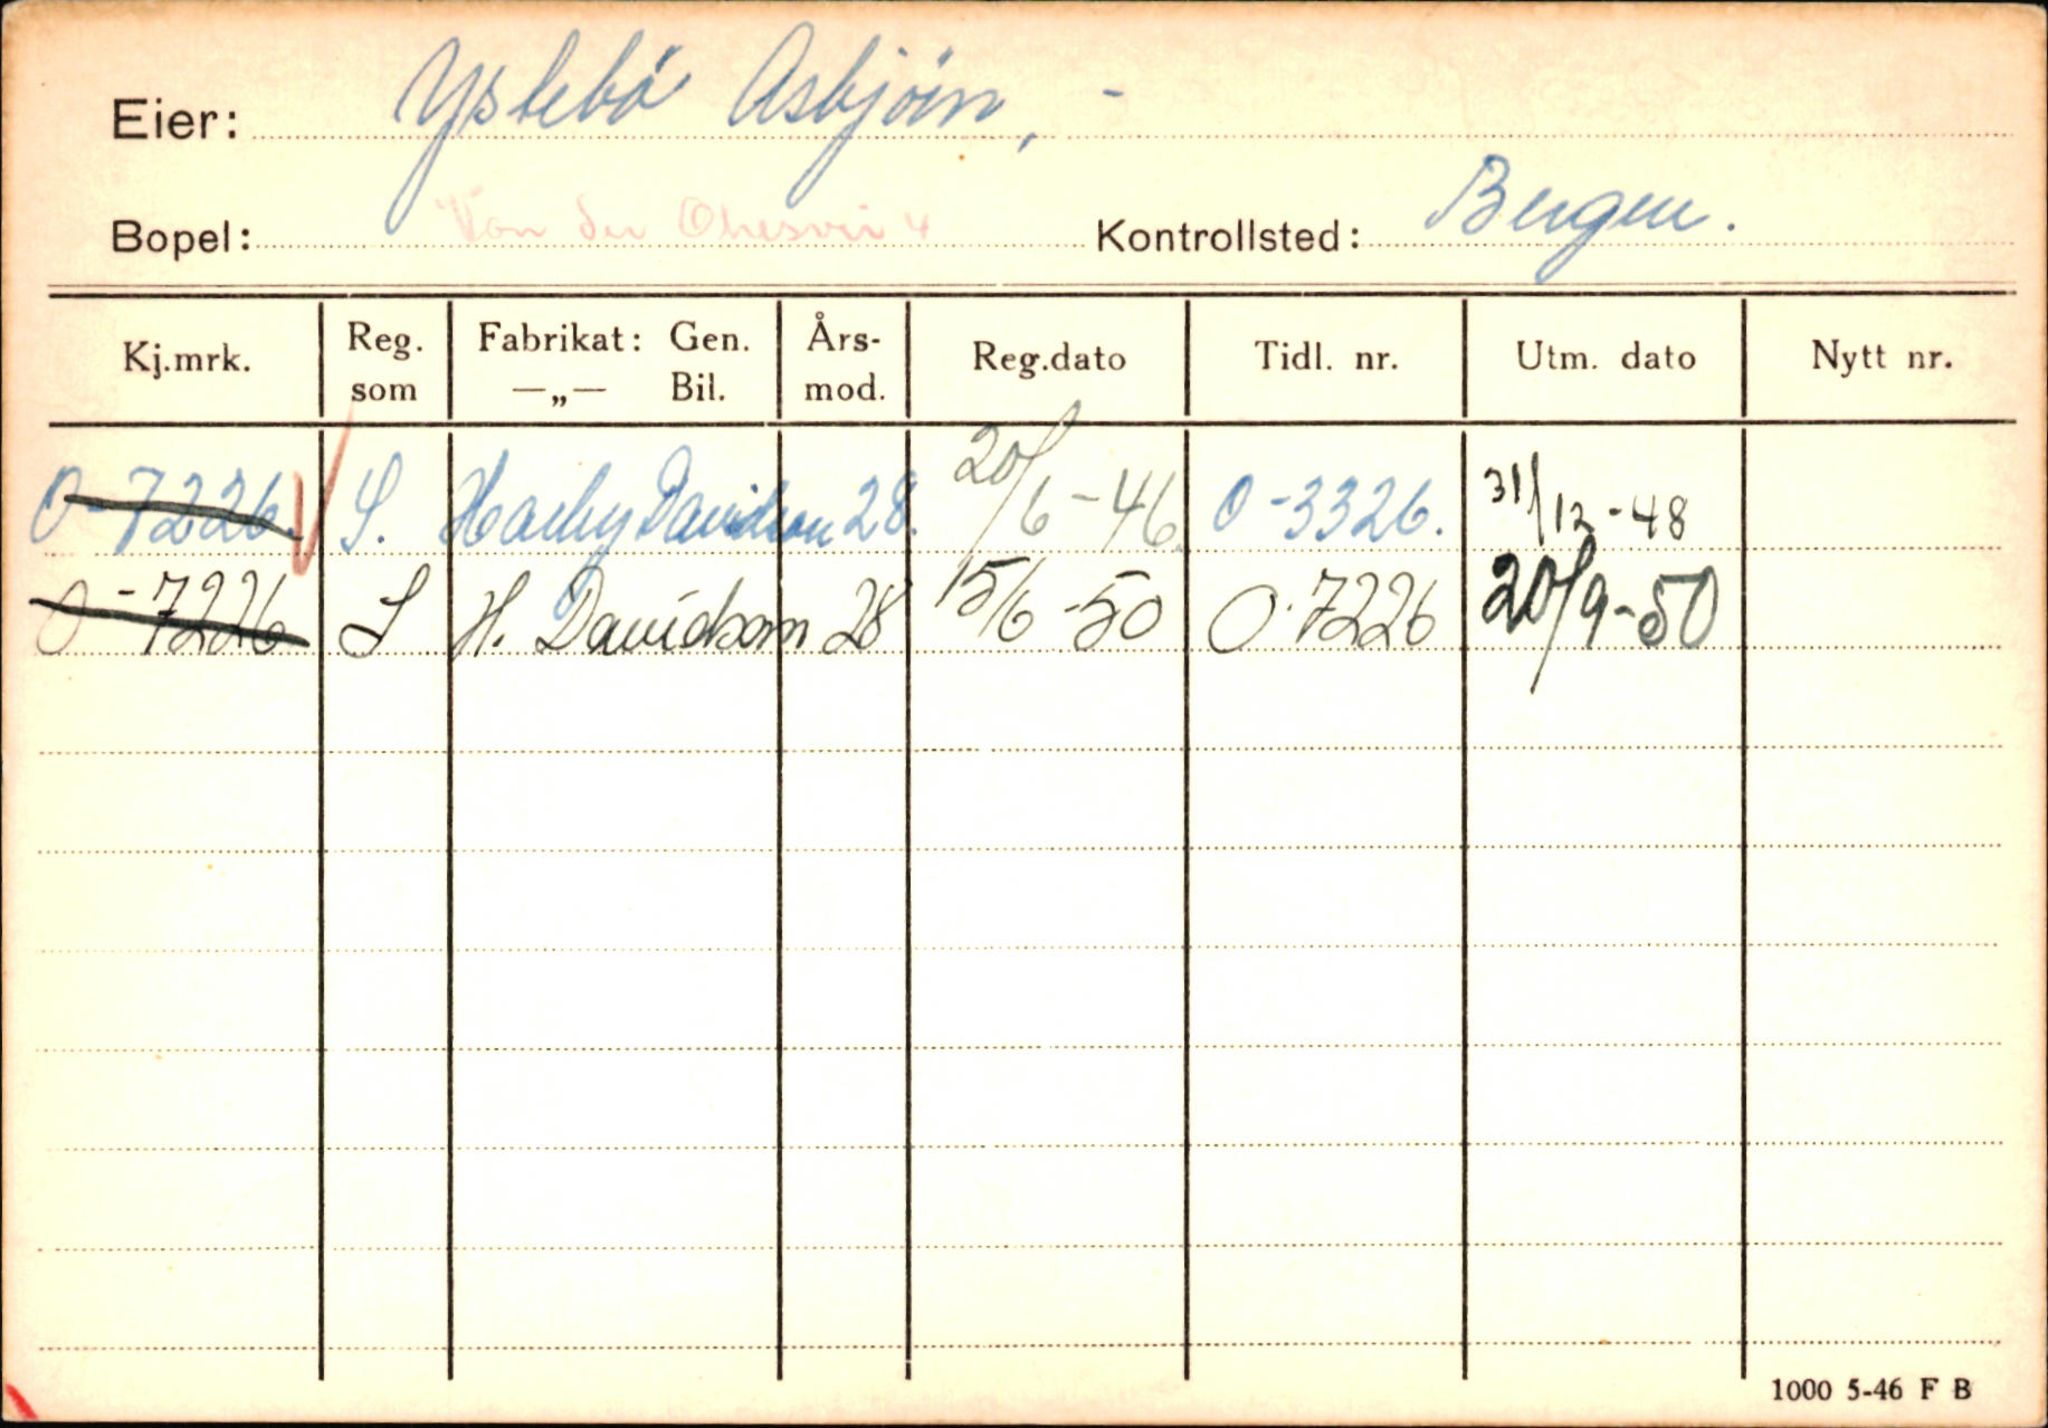 Eier: Ystebö Asbjörn, -
Bopel: Von der 4 Kontrollsted: Bergen.
Kj.mrk. Reg. som Fabrikat: Gen. —„— Bil. Års- mod. Reg.dato Tidl. nr. Utm. dato Nytt nr.
O-7226. V S. Harley Davidson 28. 20/6-46. O-3326. 31/12-48
O-7226 S H. Davidson 28 15/6-50 O-7226 20/9-50
1000 5-46 F B